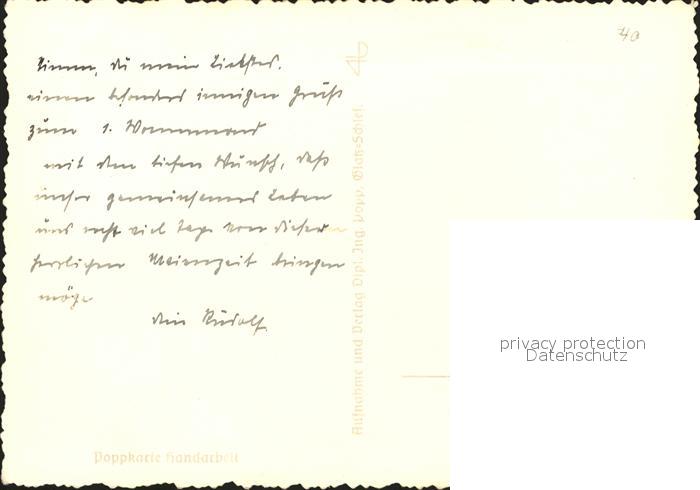 40
du mein Liebstes.
einen besonders innigen Gruß
zum 1. Wonnemond
mit dem tiefen Wunsch, daß
unser gemeinsames Leben
uns recht viel Tage von dieser
herrlichen Maienzeit bringen
möge
dein Rudolf
Poppkarte Handarbeit
Aufnahme und Verlag Dipl. Ing. Popp, Glatz=Schles.
privacy protection
Datenschutz